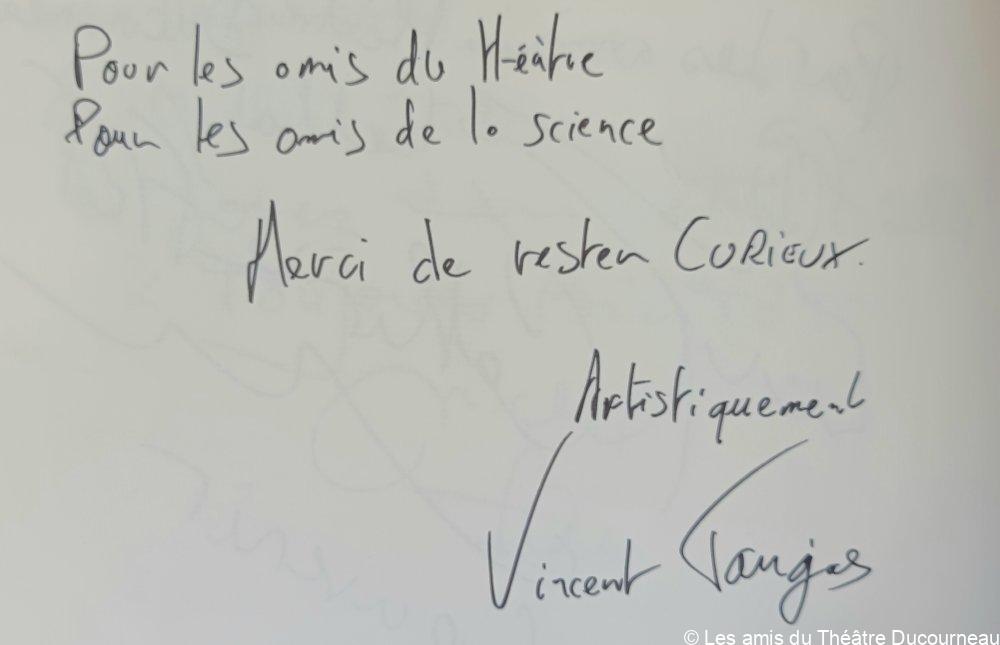 Pour les amis du théâtre
Pour les amis de la science
Merci de rester CURIEUX.
Artistiquement
Vincent
© Les amis du Théâtre Ducourneau